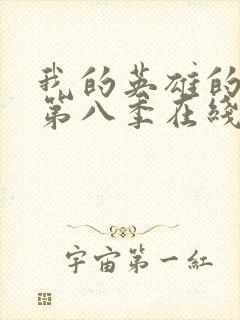 我的英雄的
第八季在线
宇宙第一红